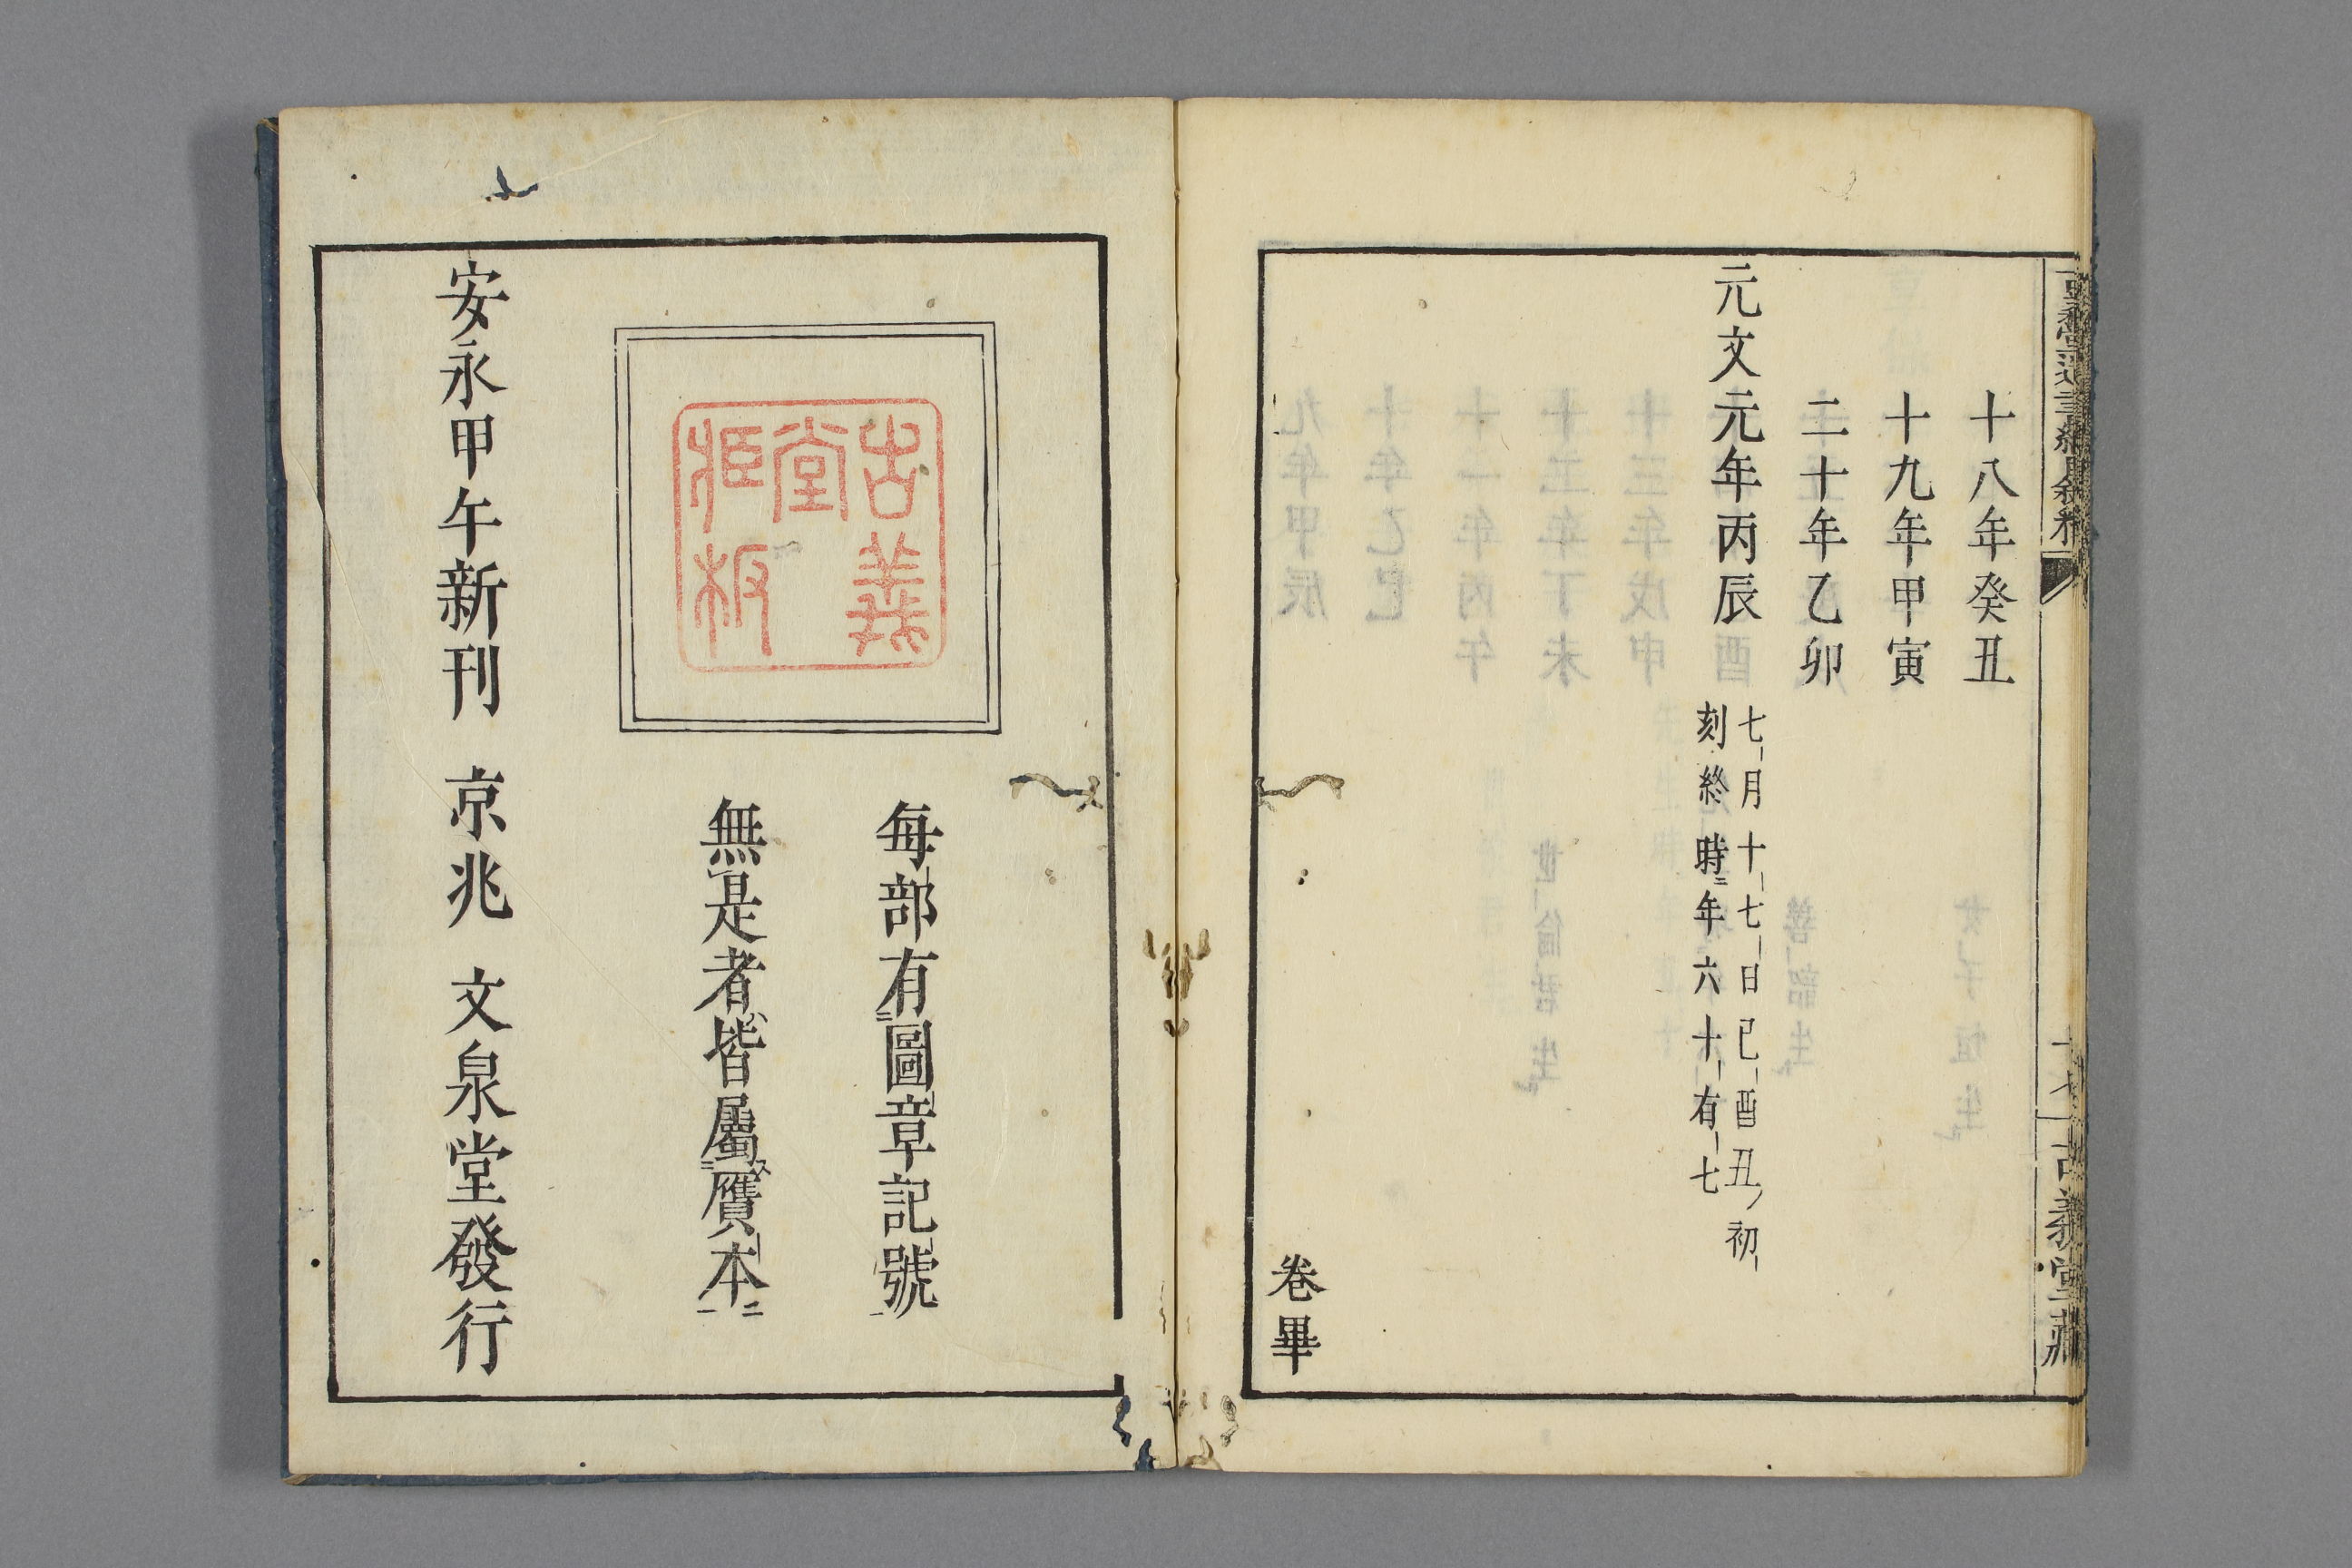 十八年癸丑
十九年甲寅
二十年乙卯
元文元年丙辰
七月十七日己酉丑初
刻終時年六十有七
卷畢
古義堂藏
古義
堂
藏板
每部有圖章記號
無是者皆屬贋本
安永甲午新刊 京兆 文泉堂發行